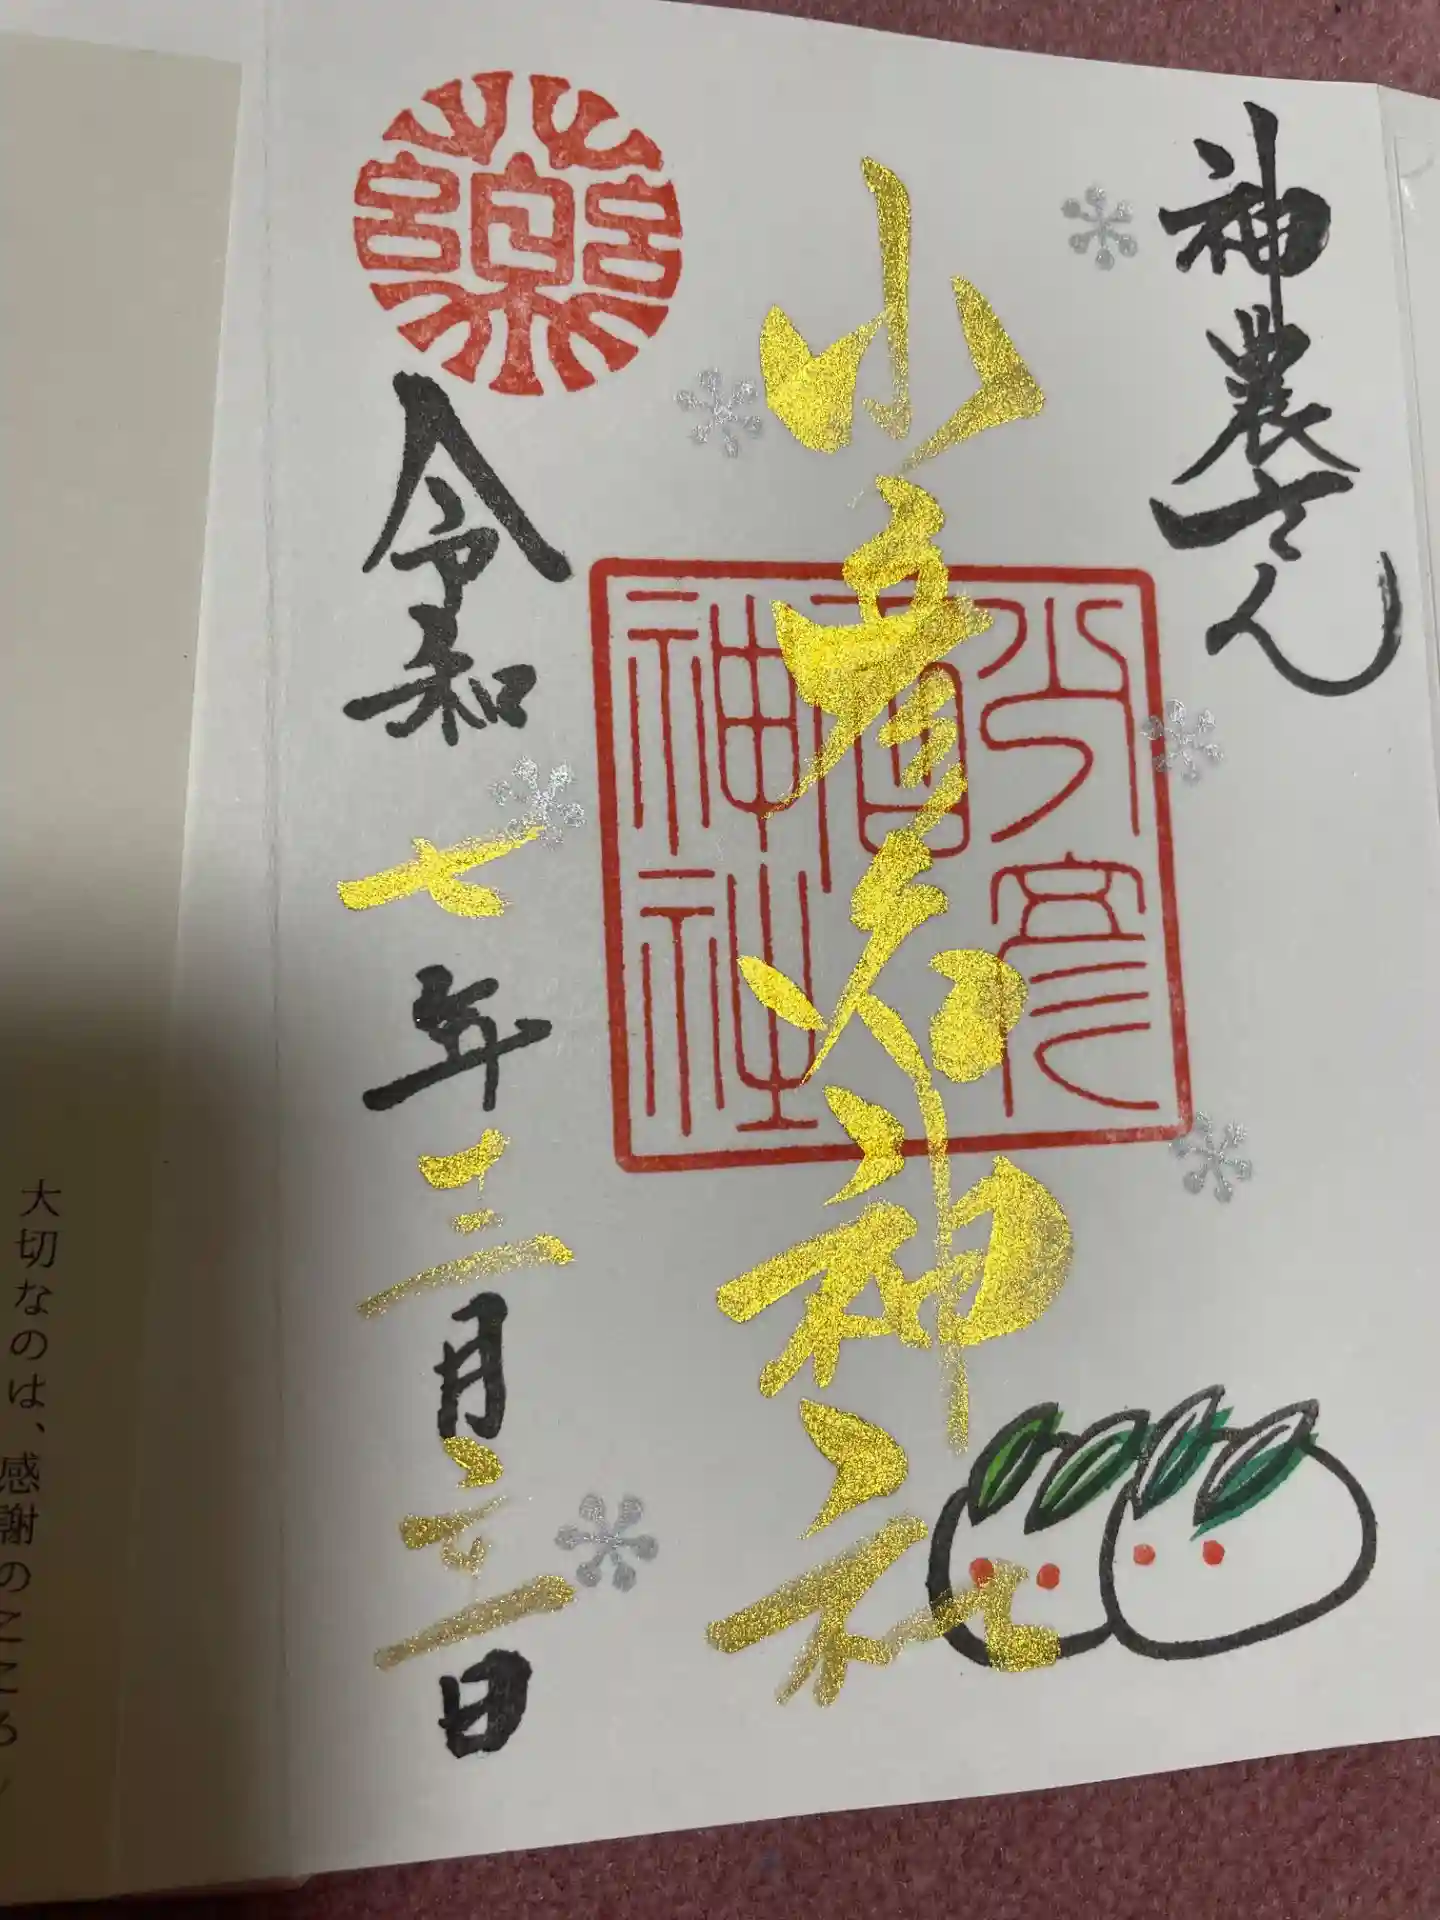 神農さん
少彦名神社
少彦名神社
令和七年
月
日
薬
大切なのは、感謝のこころ